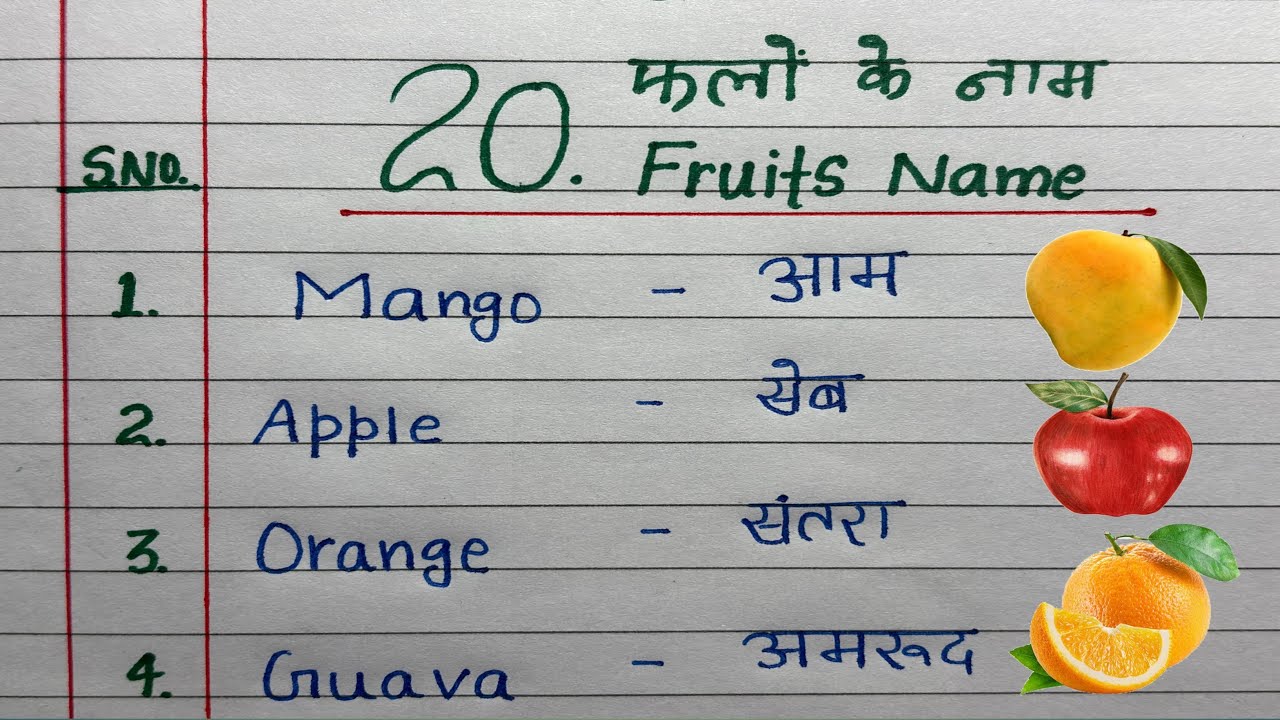 20. फलों के नाम
Fruits Name
S.NO.
1. Mango - आम
2. Apple - सेब
3. Orange - संतरा
4. Guava - अमरूद